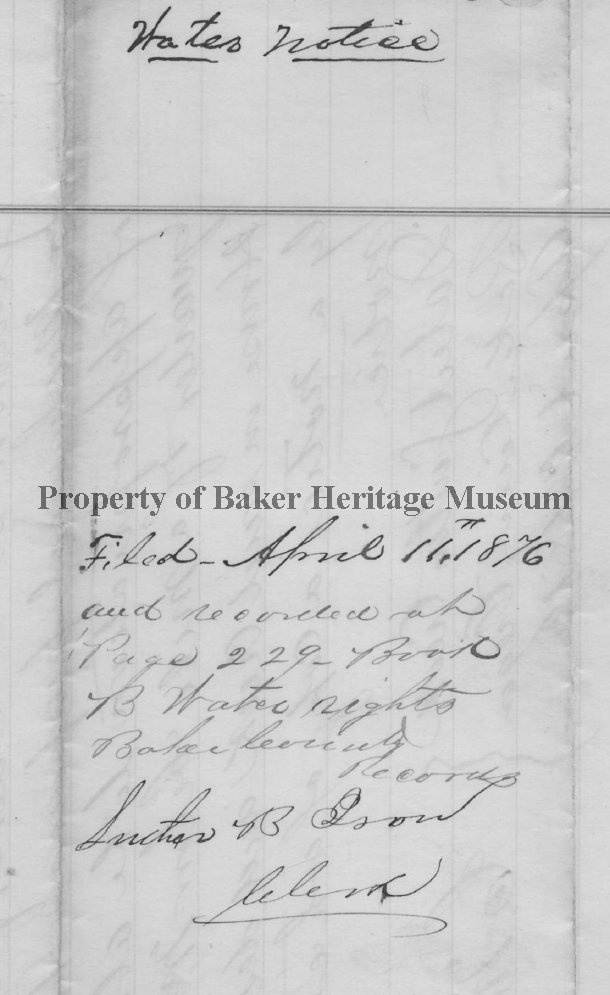 Water Notice
Property of Baker Heritage Museum
Filed - April 11th 1876
and recorded at
Page 229 - Book
B Water rights
Baker County
Records
Luther B Ison
Clerk